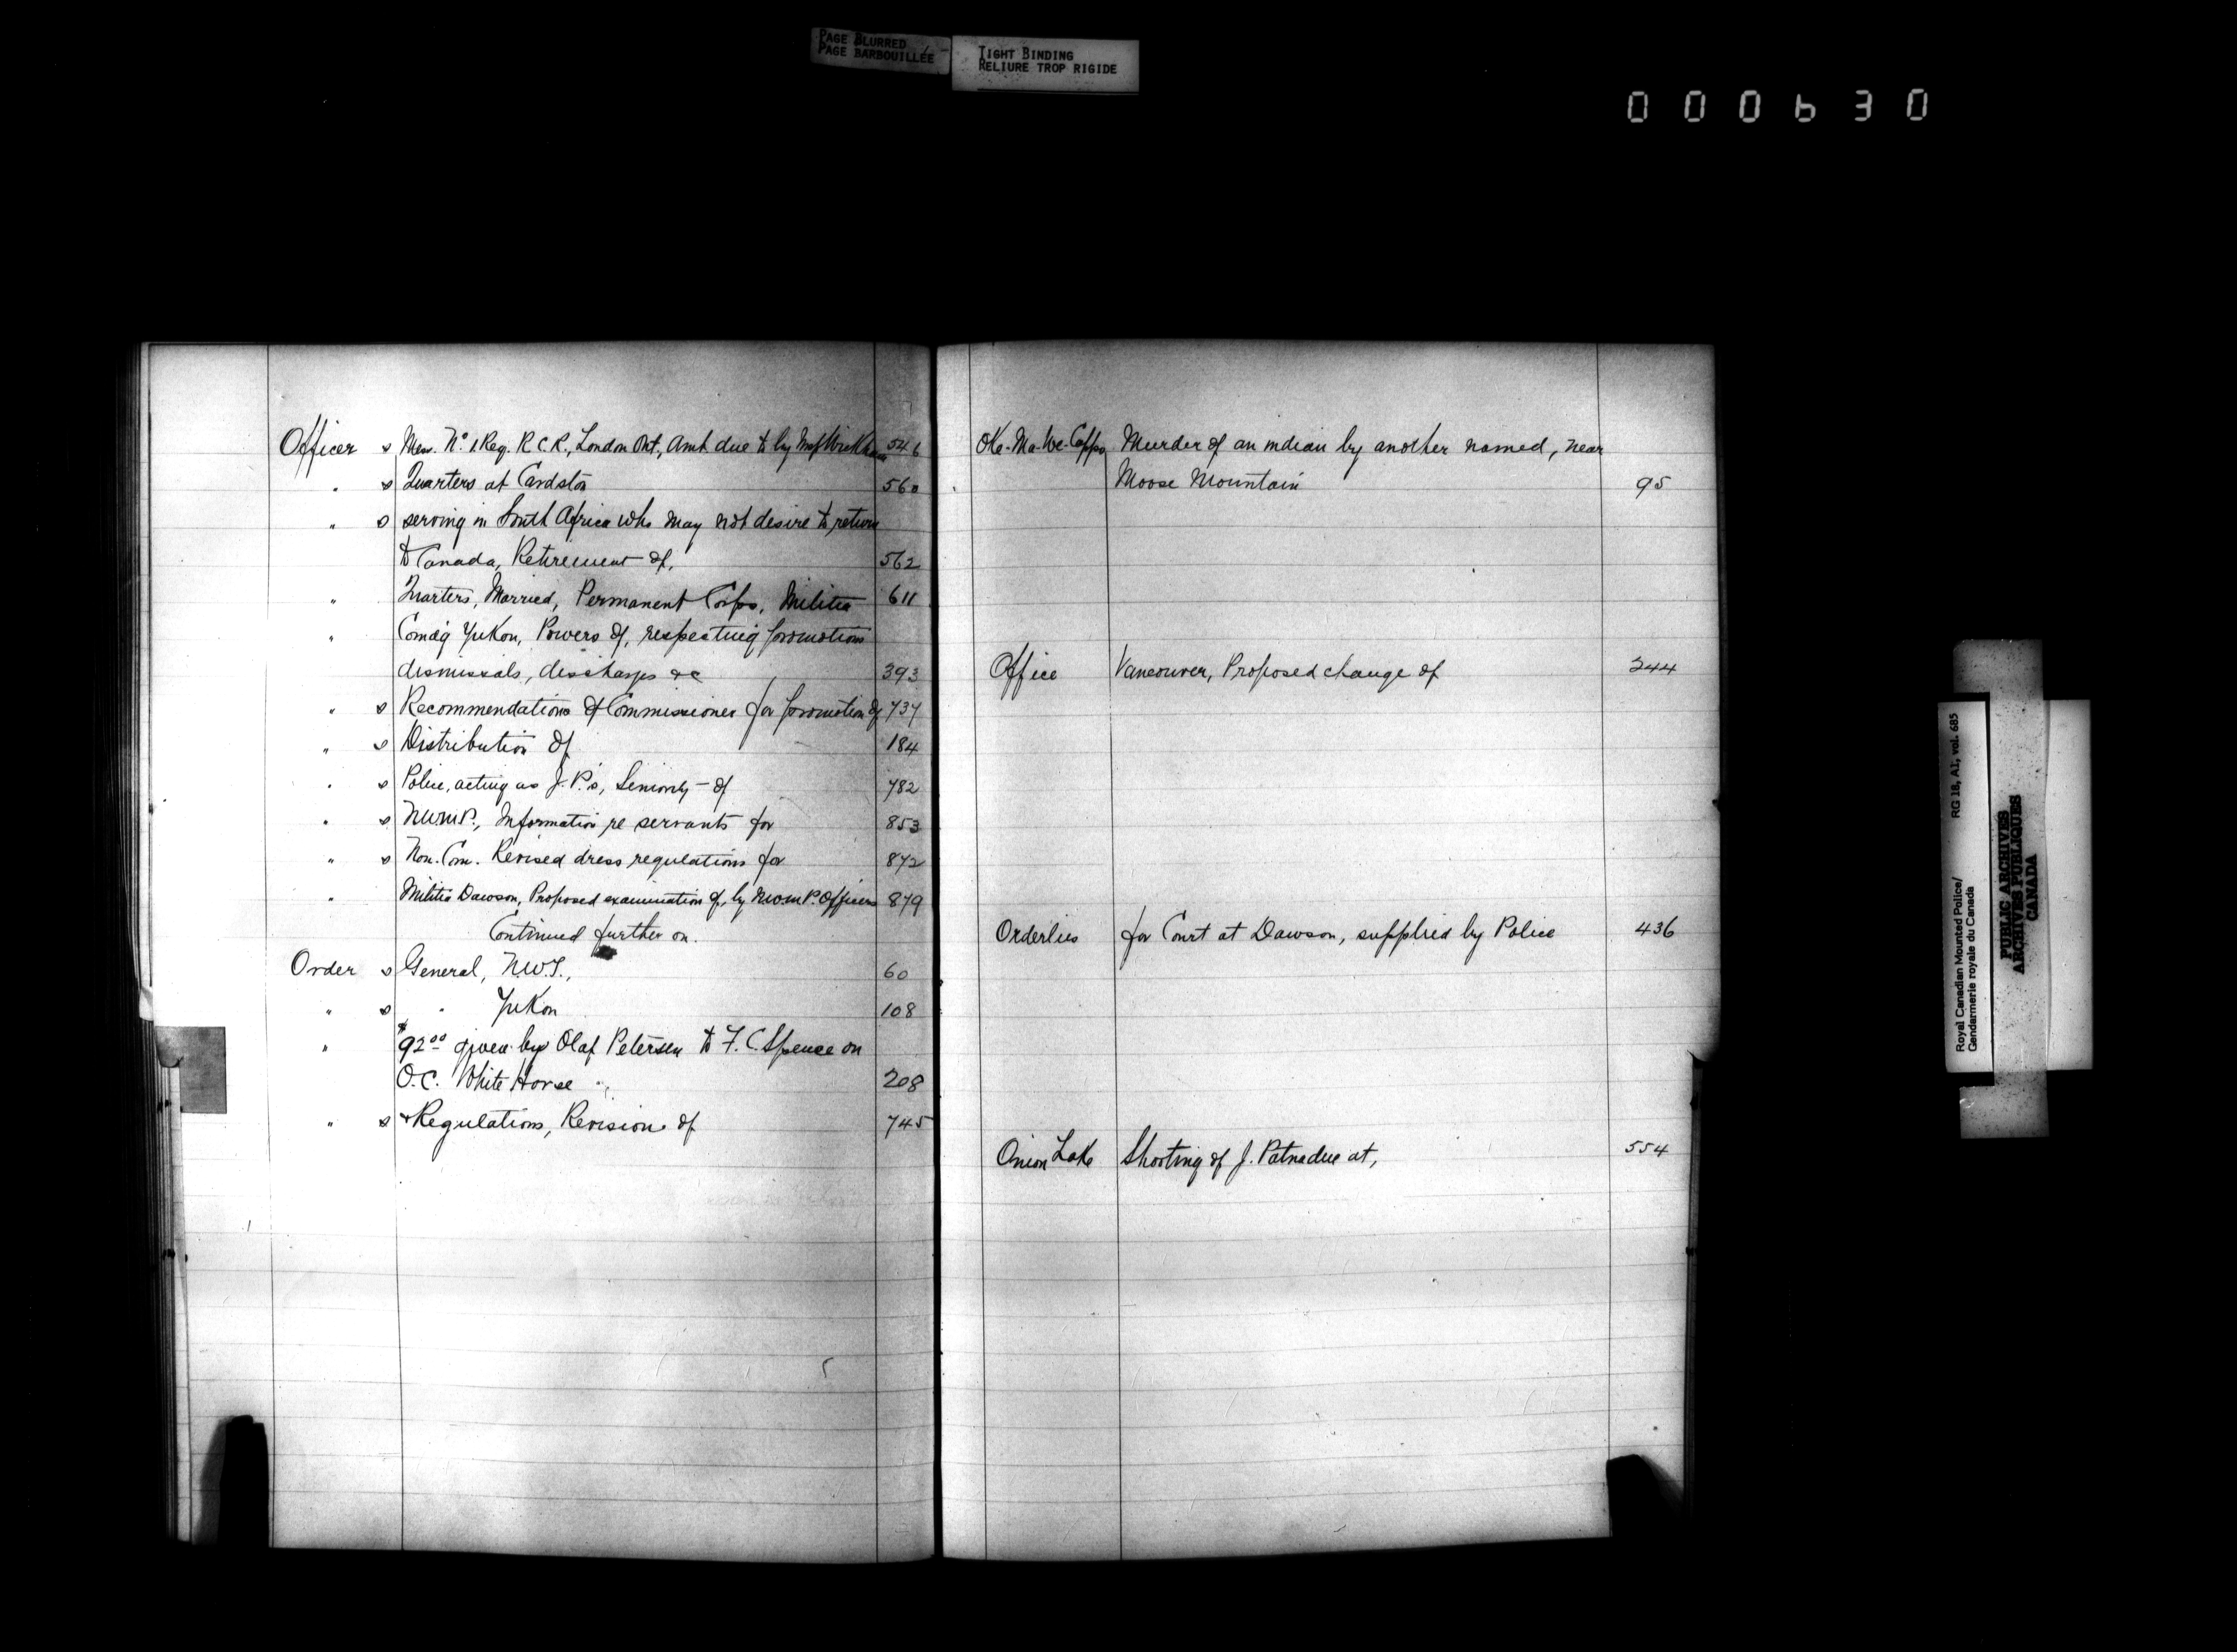 PAGE BLURRED
PAGE BARBOUILLÉE
TIGHT BINDING
RELIURE TROP RIGIDE
000630
Officer s Mess. No. 1 Reg. R C R., London Ont., Amt. due to by 546
" s Quarters at Cardston 560
" s serving in South Africa who may not desire to return
to Canada, Retirement of, 562
" Quarters, Married, Permanent Corps, Militia 611
" Comd'g Yukon, Powers of, respecting promotions
dismissals, discharges &c 393
" s Recommendations of Commissioner for promotion of 737
" s Distribution of 184
" s Police, acting as J. P.'s, Seniority of 782
" s N.W.M.P., Information re servants for 853
" s Non. Com. Revised dress regulations for 872
" Militia Dawson, Proposed examination of, by N.W.M.P. Officers 879
Continued further on.
Order s General, N.W.T., 60
" s " Yukon 108
" $92.00 given by Olaf Petersen to F. C. Spence on
O.C. White Horse 208
" s & Regulations, Revision of 745
Oke-Ma-We-Cappo Murder of an indian by another named, near
Moose Mountain 95
Office Vancouver, Proposed change of 244
Orderlies for Court at Dawson, supplied by Police 436
Onion Lake Shooting of J. Patnadue at, 554
Royal Canadian Mounted Police/ RG 18, A1, vol. 685
Gendarmerie royale du Canada
PUBLIC ARCHIVES
ARCHIVES PUBLIQUES
CANADA